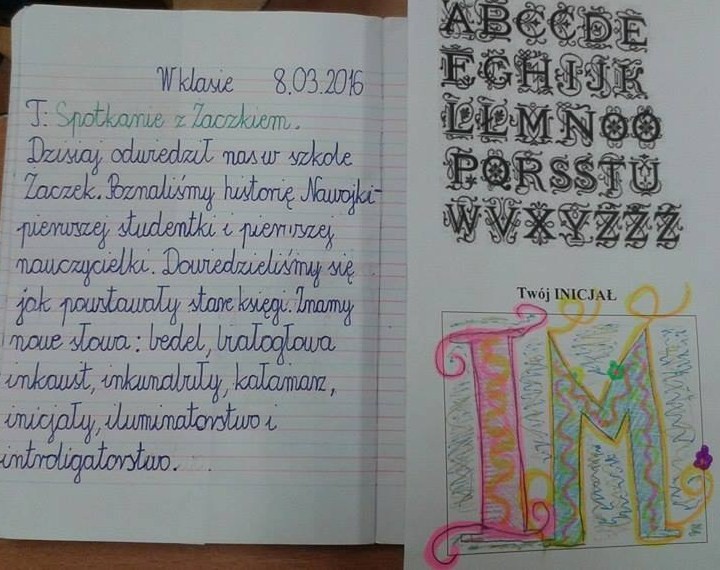 W klasie 8.03.2016
T: Spotkanie z Żaczkiem.
Dzisiaj odwiedził nas w szkole
Żaczek. Poznaliśmy historię Nawojki-
pierwszej studentki i pierwszej
nauczycielki. Dowiedzieliśmy się
jak powstawały stare księgi. Znamy
nowe słowa: bedel, białogłowa
inkaust, inkunabuły, kałamarz,
inicjały, iluminatorstwo i
introligatorstwo.
A B C Ć D E
F G H I J K
L Ł M N O Ó
P Q R S Ś T U
W V X Y Z Ź Ż
Twój INICJAŁ
I M